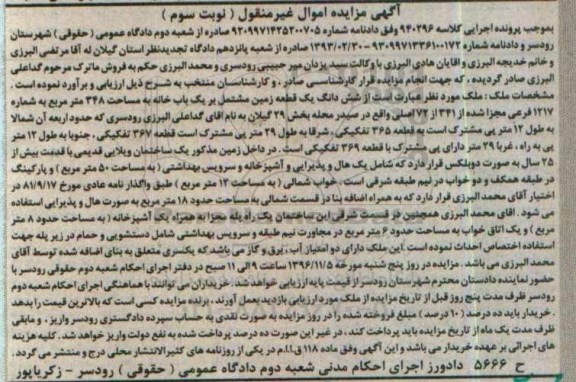 آگهی مزایده اموال غیرمنقول ( نوبت سوم )
بموجب پرونده اجرایی کلاسه ۹۴۰۳۹۶ وفق دادنامه شماره ۹۲۰۹۹۷۱۴۳۵۲۰۰۷۰۵ صادره از شعبه دوم دادگاه عمومی ( حقوقی ) شهرستان
رودسر و دادنامه شماره ۹۳۰۹۹۷۱۳۳۶۱۰۰۱۷۲ - ۱۳۹۳/۰۲/۳۰ صادره از شعبه پانزدهم دادگاه تجدیدنظر استان گیلان له آقا مرتضی البرزی
و خانم خدیجه البرزی و اقایان هادی البرزی با وکالت سید یزدان میر حبیبی رودسری و محمد البرزی حکم به فروش ماترک مرحوم گداعلی
البرزی صادر گردیده ، که جهت انجام مزایده قرار کارشناسی صادر ، و کارشناسان منتخب به شرح ذیل ارزیابی و برآورد نموده است .
مشخصات ملک : ملک مورد نظر عبارت است از شش دانگ یک قطعه زمین مشتمل بر یک باب خانه به مساحت ۳۴۸ متر مربع به شماره
۱۲۱۷ فرعی مجزا شده از ۳۴۱ از ۷۲ اصلی واقع در سیدر محله بخش ۲۹ گیلان به نام اقای گداعلی البرزی رودسری که حدود اربعه آن شمالا
به طول ۱۲ متر پی مشترک است به قطعه ۳۶۵ تفکیکی ، شرقا به طول ۲۹ متر پی مشترک است قطعه ۳۶۷ تفکیکی ، جنوبا به طول ۱۲ متر
پی به راه ، غربا ۲۹ متر دارای پی مشترک با قطعه ۳۶۹ تفکیکی است . در داخل زمین مذکور یک ساختمان ویلایی قدیمی با قدمت بیش از
۲۵ سال به صورت دوبلکس قرار دارد که شامل یک هال و پذیرایی و آشپزخانه و سرویس بهداشتی ( به مساحت ۵۰ متر مربع ) و پارکینگ
در طبقه همکف و دو خواب در نیم طبقه شرقی است . خواب شمالی ( به مساحت ۱۲ متر مربع ) طبق واگذار نامه عادی مورخ ۸۱/۹/۱۷ در
اختیار آقای محمد البرزی قرار دارد که به همراه اضافه بنا در قسمت شمالی به مساحت حدود ۱۸ متر مربع به صورت هال و پذیرایی استفاده
می شود . اقای محمد البرزی همچنین در قسمت شرقی این ساختمان یک راه پله مجزا به همراه یک آشپزخانه ( به مساحت حدود ۸ متر
مربع ) و یک اتاق خواب به مساحت حدود ۶ متر مربع در مجاورت نیم طبقه و سرویس بهداشتی شامل دستشویی و حمام در زیر پله جهت
استفاده اختصاص احداث نموده است . این ملک دارای دو امتیاز آب ، برق و گاز می باشد که یکسری متعلق به بنای اضافه شده توسط آقای
محمد البرزی می باشد . مزایده در روز پنج شنبه مورخه ۱۳۹۶/۱۱/۵ ساعت ۹ الی ۱۱ صبح در دفتر اجرای احکام شعبه دوم حقوقی رودسر با
حضور نماینده دادستان محترم شهرستان رودسر از قیمت پایه ارزیابی خواهد شد . خریداران می توانند با هماهنگی اجرای احکام شعبه دوم
رودسر ظرف مدت پنج روز قبل از تاریخ مزایده از ملک مورد ارزیابی بازدید بعمل آورند . برنده مزایده کسی است که بالاترین قیمت را بدهد
. خریدار باید ده درصد ( ۱۰ درصد ) مبلغ فروخته شده را در روز مزایده به صورت نقدی به حساب سپرده دادگستری رودسر واریز ، و مابقی
ظرف مدت یک ماه از تاریخ مزایده باید پرداخت کند ، در غیر این صورت ده درصد پرداخت شده به نفع دولت واریز خواهد شد . کلیه هزینه
های اجرائی بر عهده خریدار می باشد و این آگهی وفق ماده ۱۱۸ ق.ا.م در یکی از روزنامه های کثیرالانتشار محلی درج و منتشر می گردد .
ح ۵۶۶۶ دادورز اجرای احکام مدنی شعبه دوم دادگاه عمومی ( حقوقی ) رودسر - زکریاپور